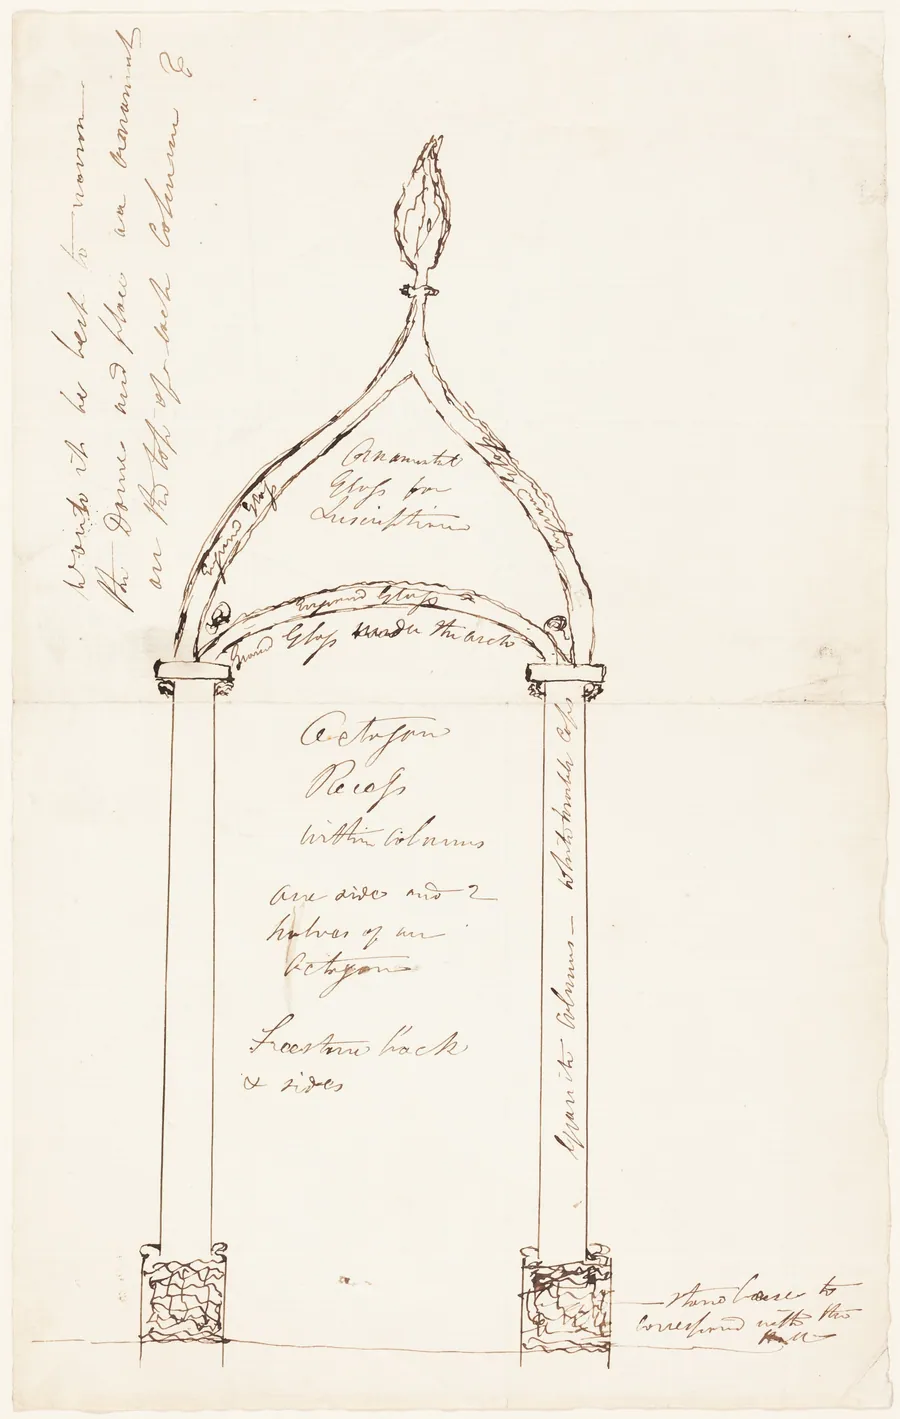 Would it be best to
the Dome and place an ornament
on the top of each Column
Ornamental
Glass for
Inscription
Ground Glass
Ground Glass
Ground Glass
Ground Glass under the arch
Octagon
Recess
within Columns
one side and 2
halves of an
Octagon
Freestone back
& sides
Granite Columns — White marble Caps
stone bases to
correspond with the